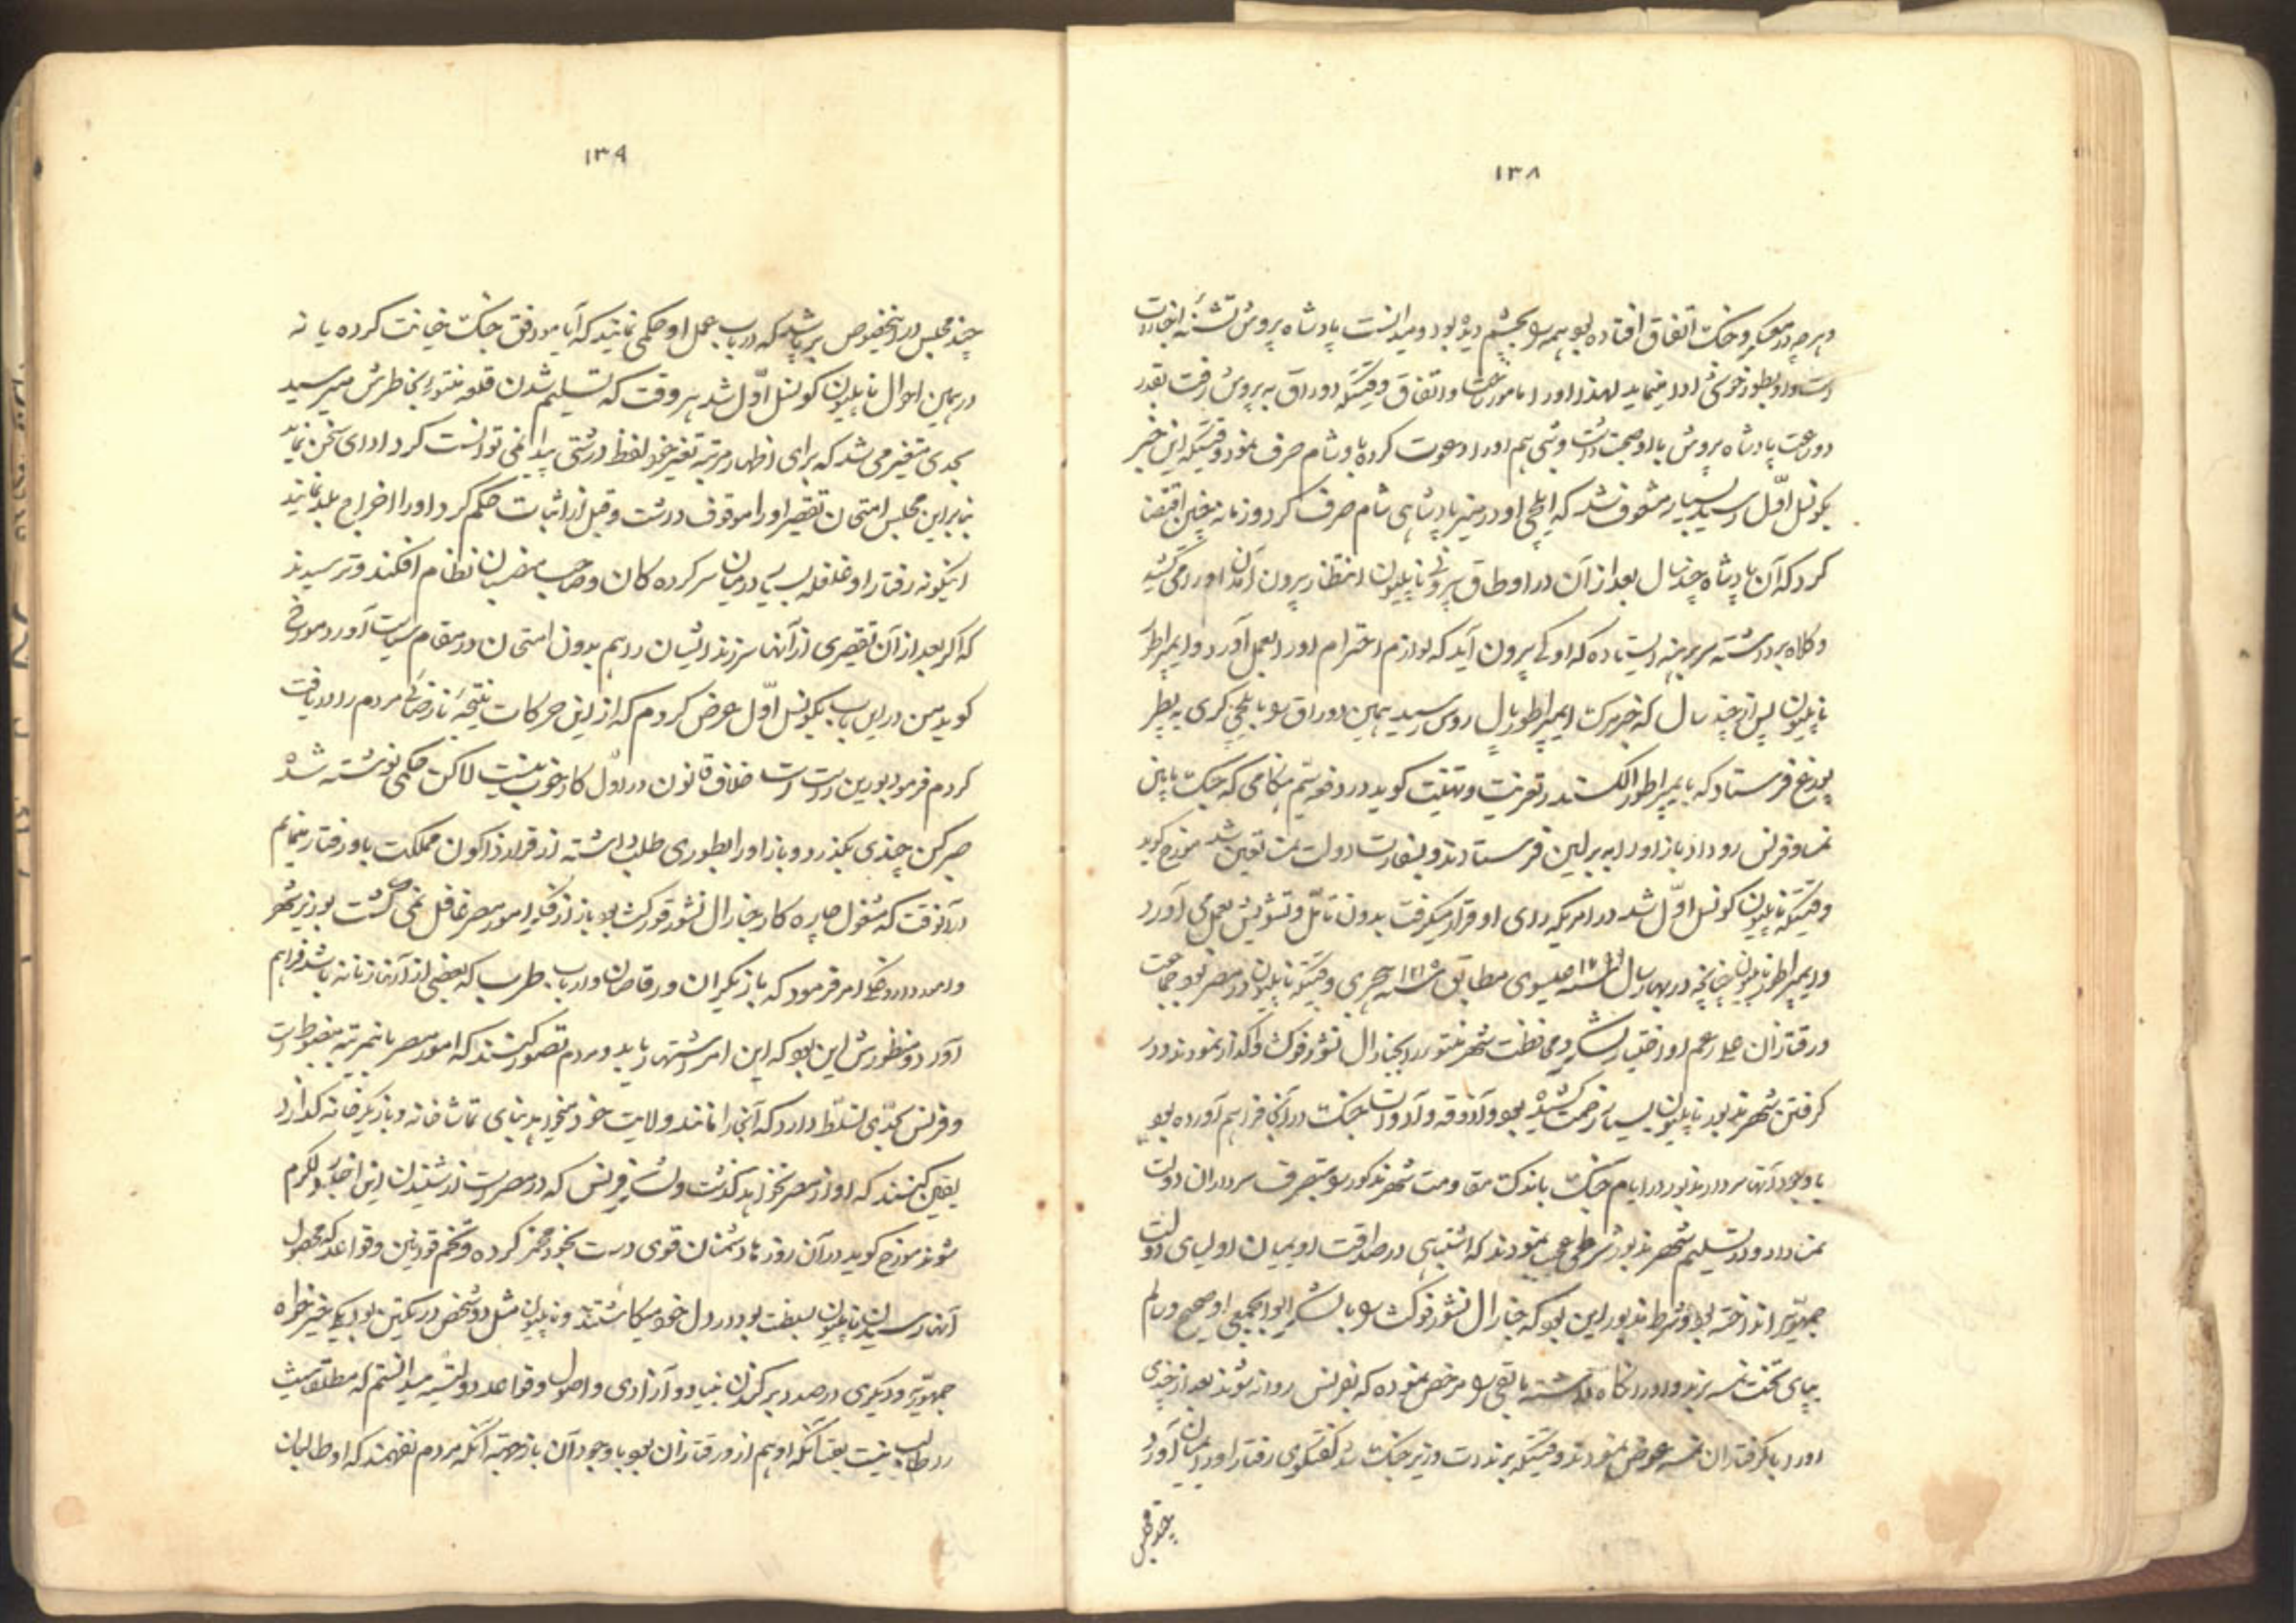 ۱۳۸
و هرچه در معسکر و جنگ اتفاق افتاده بود همه را بچشم دیده بود و میدانست پادشاه پروش تشنه اینجاردات
است و او بطور خوشی ادا مینماید لهذا او را مامور ساخت و اتفاق وقتیکه دوراق به پروش رفت بقدر
دو ساعت پادشاه پروش با او صحبت داشت و شبی هم او را دعوت کرده با او شام صرف نمود وقتیکه این خبر
بکونسل اوّل رسید بسیار مشعوف شد که ایلچی او در میز پادشاهی شام صرف کرد و زمانه چنین اقتضا
کرد که آن پادشاه چند سال بعد از آن در اوطاق بیرونی ناپلیون انتظار بیرون آمدن او را می کشید
و کلاه برداشته سر برهنه ایستاده که او کی بیرون آید که لوازم احترام او را بعمل آورد و ایمپراطور
ناپلیون پس از چند سال که خبر مرگ ایمپراطور پال روس رسید همین دوراق را بایلچی گری به پطر
بورغ فرستاد که با ایمپراطور الکسندر تعزیت و تهنیت گوید در دفعه سیم هنگامی که جنگ ما بین
نمسا و فرنس رو داد باز او را به برلین فرستادند و بسفارت دولت نمسا تعین شد مورّخ گوید
وقتیکه ناپلیون کونسل اوّل شد در امریکه رای او قرار میگرفت بدون تأمّل و تشویش بعمل می آورد
و ایمپراطور ناپلیون چنانچه در بهار سال ۱۷۹۹ عیسوی مطابق سنه ۱۲۱۵ هجری وقتیکه ناپلیون در مصر بود جماعت
ورقتاران علی رغم او اختیار لشکر و محافظت شهر منتو را بجنرال نشور فوکت واگذار نمودند و در
گرفتن شهر مذبور ناپلیون بسیار زحمت کشیده بود و آذوقه و آلات جنگ در آنجا فراهم آورده بود
با وجود آنها سردار مذبور در ایام جنگ باندک مقاومت شهر مذکور را بتصرف سرداران دولت
نمسا داد و در تسلیم شهر مذبور شرطی عجب نمودند که اشتباهی در صداقت او بمیان اولیای دولت
جمهوریّه انداخته بود و شرط مذبور این بود که جنرال نشور فوکت را با لشکر ابوابجمعی او صحیح و سالم
بپای تخت نمسه برند و او را نگاه داشته باقی را مرخص نموده که بفرنس روانه شوند بعد از چندی
او را با گرفتاران نمسه عوض نمودند وقتیکه برندت وزیر جنگ شد گفتگوی رفتار او را بمیان آورد
چند مجلس
۱۳۹
چند مجلس در اینخصوص برپا شد که در باب عمل او حکمی نمایند که آیا موافق جنگ خیانت کرده یا نه
در همین احوال ناپلیون کونسل اوّل شد هر وقت که تسلیم شدن قلعه منتو را بخاطرش میرسید
بحدی متغیر می شد که برای اظهار مرتبه تغیر خود لفظ درشتی پیدا نمی توانست کرد ادای سخن نماید
بنابراین مجلس امتحان تقصیر او را موقوف داشت و قبل از اثبات حکم کرد او را اخراج بلد نمایند
اینگونه رفتار او غلغله بسیار در میان سرکرده گان و صاحب منصبان نظام افکند و ترسیدند
که اگر بعد از آن تقصیری از آنها سرزند ایشان را هم بدون امتحان در مقام سیاست آورد مورّخ
گوید من در این باب بکونسل اوّل عرض کردم که از این حرکات نتیجهٔ نارضائی مردم را دریافت
کردم فرمود بورین راست است خلاف قانون در اوّل کار خوب نیست لاکن حکمی نوشته شده
صبر کن چندی بگذرد و باز او را بطوری طلب داشته از قرار قانون مملکت با او رفتار مینمایم
در آنوقت که مشغول چاره کار جنرال نشور فوکت بود باز از فکر امور مصر غافل نمی گشت بوزیر شهر
و امور داخلی امر فرمود که بازیگران و رقاصان و ارباب طرب که بعضی از آنها زنانه باشد فراهم
آورد و منظورش این بود که این امر اشتهار یابد و مردم تصور کنند که امور مصر بانمرتبه مضبوط است
و فرنس بحدّی تسلّط دارد که آنجا را مانند ولایت خود میخواهد بنای تماشاخانه و بازیگرخانه گذارد
یقین کنند که او از مصر نخواهد گذشت و لشکر فرنس که در مصر است از شنیدن این اخبار دلگرم
شوند مورّخ گوید در آن روزها دشمنان قوی دست بخود منجر کرده و تخم قوانین و قواعد که محصول
آنها رسیدن ناپلیون بسلطنت بود در دل خود میکاشتند و ناپلیون مثل دو شخص در یکتن بود یکی خیرخواه
جمهوریّه و دیگری در صدد برکندن بنیاد و آزادی و اصول و قواعد دولتیه میدانستم که مطلق بحیث
را طالب نیست بعنانکه او هم از ورقتاران بود با وجود آن باز جهته آنکه مردم نفهمند که او طالبان